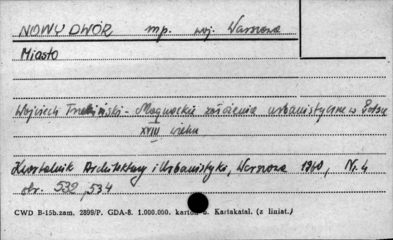 NOWY DWÓR mp. woj. Warszawa
Miasto
Wojciech Trzebiński - Magnackie założenia urbanistyczne w Polsce
XVIII wieku
Kwartalnik Architektury i Urbanistyki, Warszawa Nr. 4
str. 532, 534
CWD B-15b.zam. 2899/P. GDA-8. 1.000.000. karton Kartakatal. (z liniat.)